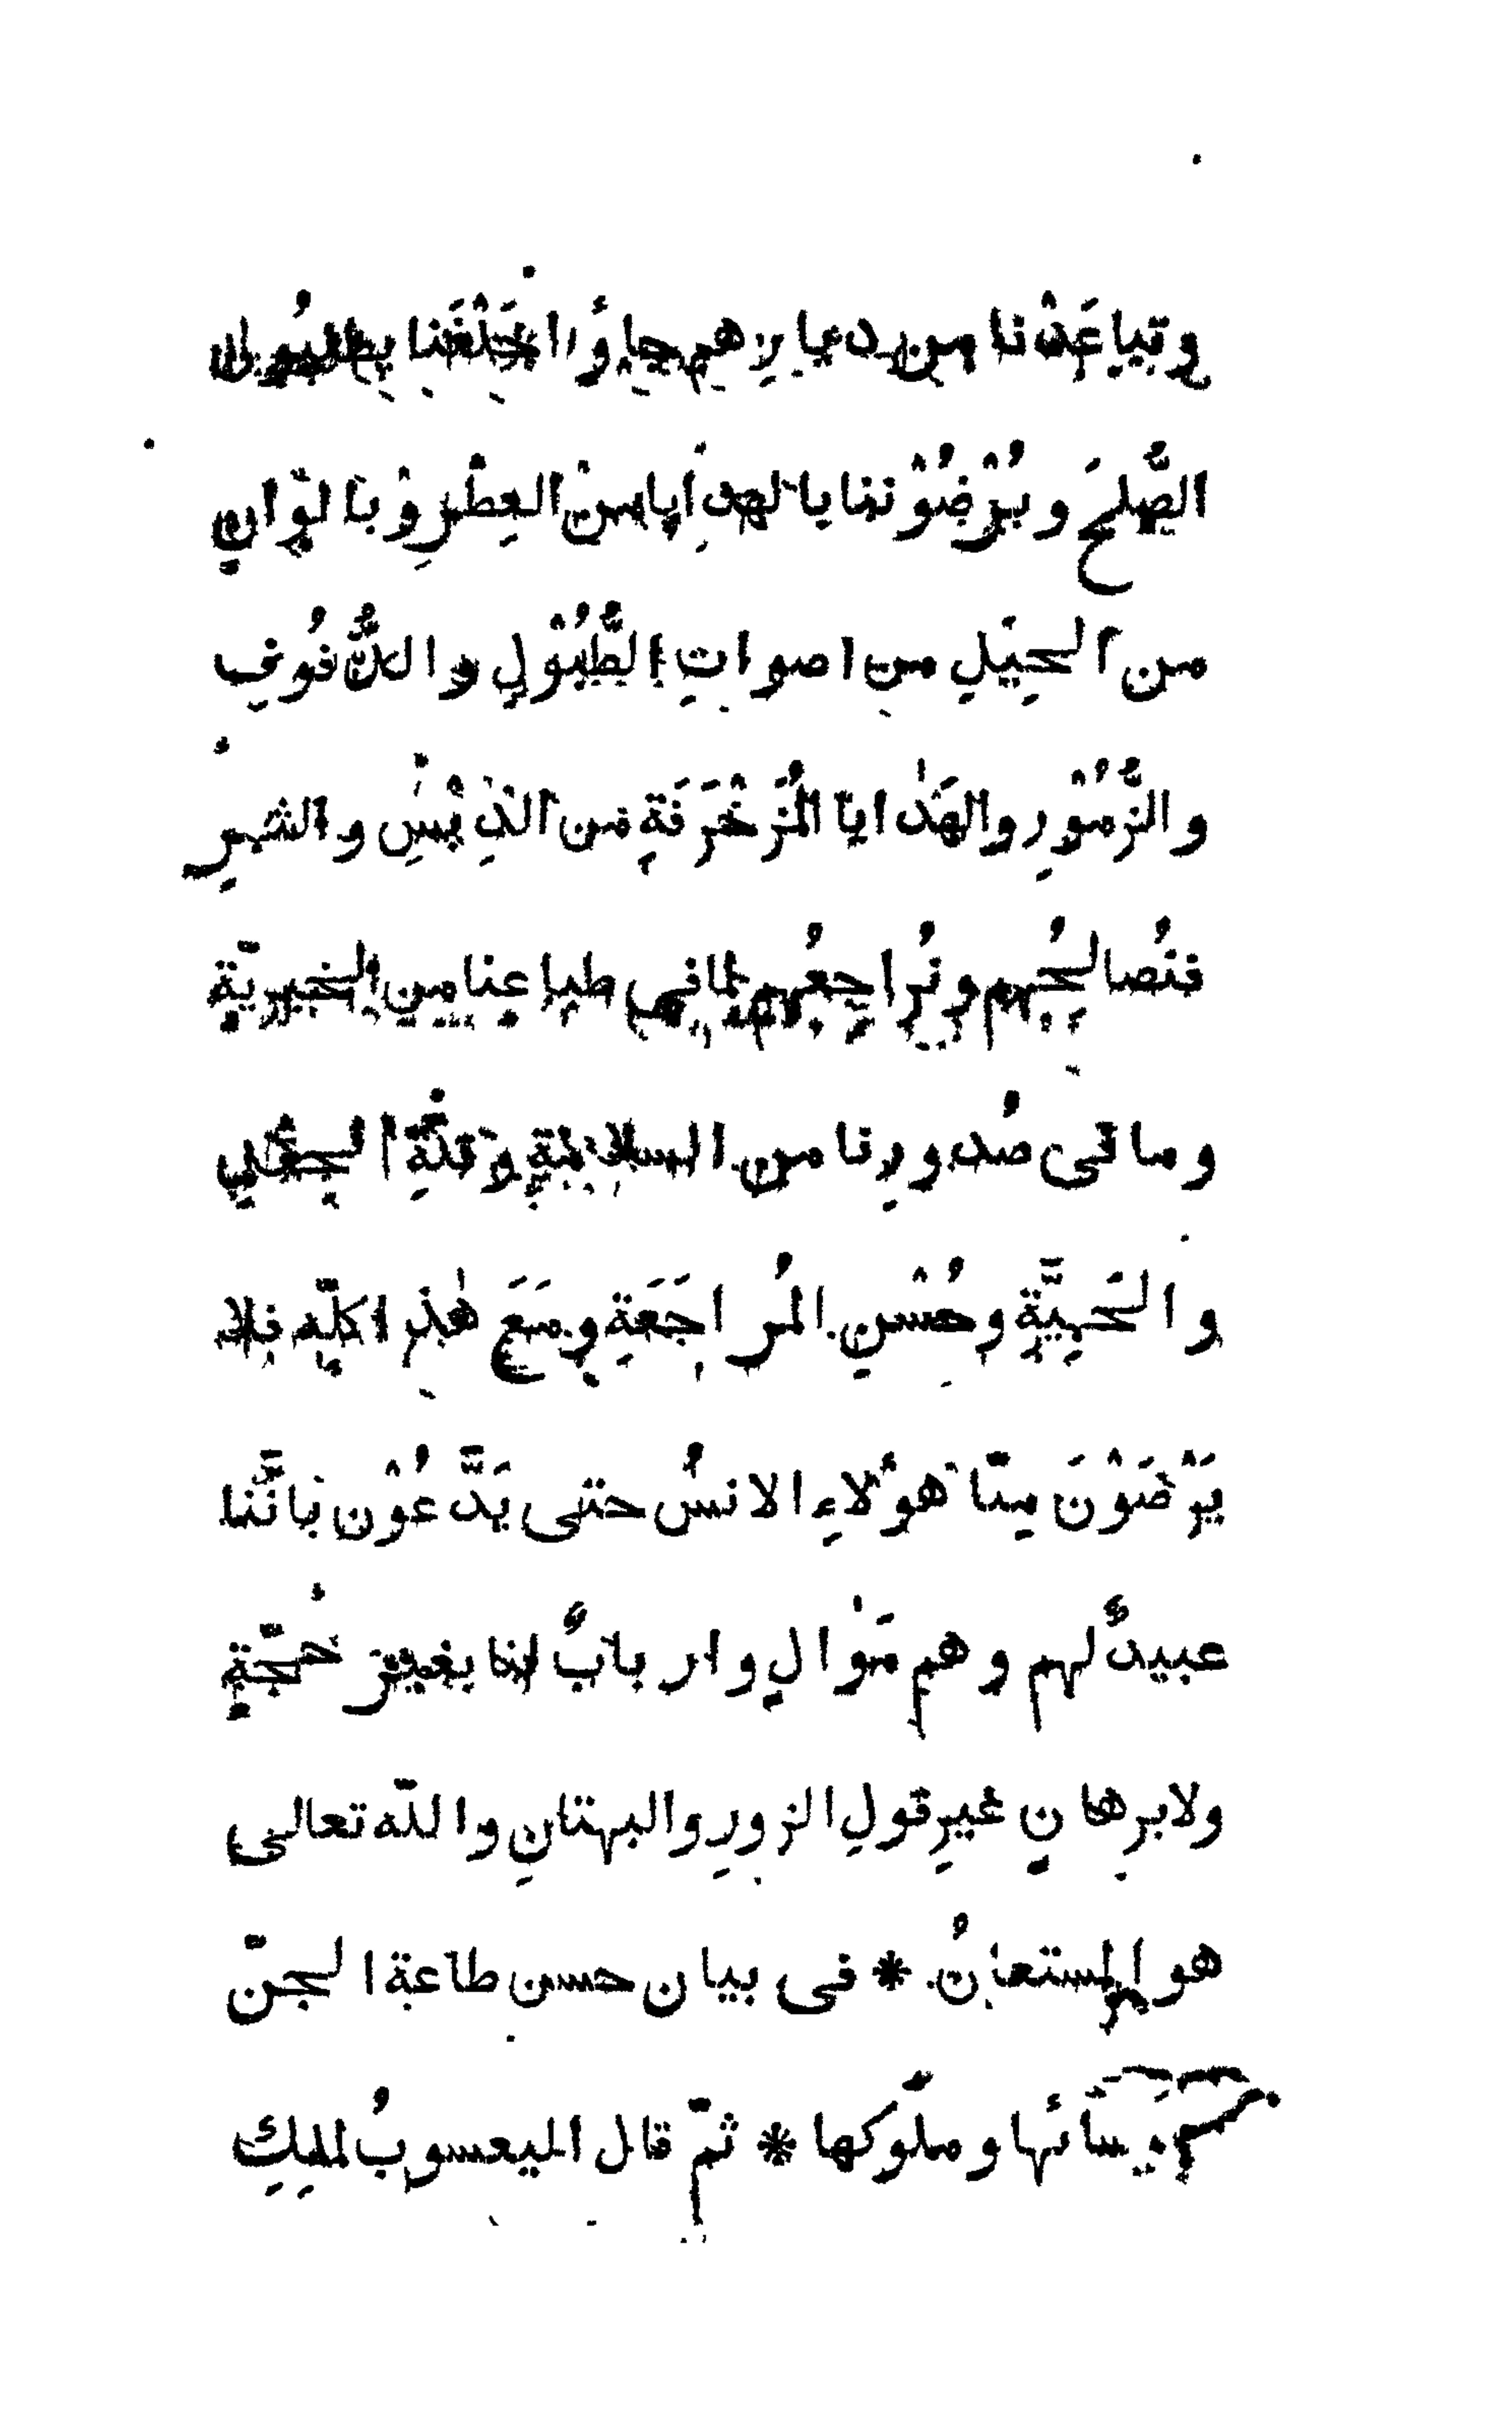 وتباعَدْنا من ديارهم جاؤا خَلْفَنا يطلبُون
الصُّلحَ ويُرْضُوْننا بالهدايا من العِطْرِ وبالوانٍ
من الحِيَلِ من اصواتِ الطُّبُوْلِ والدُّفُوفِ
والزُّمُوْرِ والهَدٰايا المُزَخْرَفَةِ من الدِبْسِ والتمرِ
فنُصالِحُهم ونُراجِعُهم لما في طباعنا من الخيريّةِ
وما في صُدورِنا من السلامةِ وقلّةِ الحِقْدِ
والحَمِيَّةِ وحُسْنِ المُراجَعَةِ ومَعَ هٰذا كلِّه فلا
يَرْضَوْنَ منّا هؤلاءِ الانسُ حتى يَدَّعُوْن بانَّنا
عبيدٌ لهم وهم مَوٰالٍ واربابٌ لنا بغير حُجّةٍ
ولا برهانٍ غيرِ قولِ الزورِ والبهتانِ واللّه تعالى
هو المستعانُ * في بيان حسن طاعة الجنّ
لرؤسائها وملوكها * ثمّ قال اليعسوبُ لملِكِ